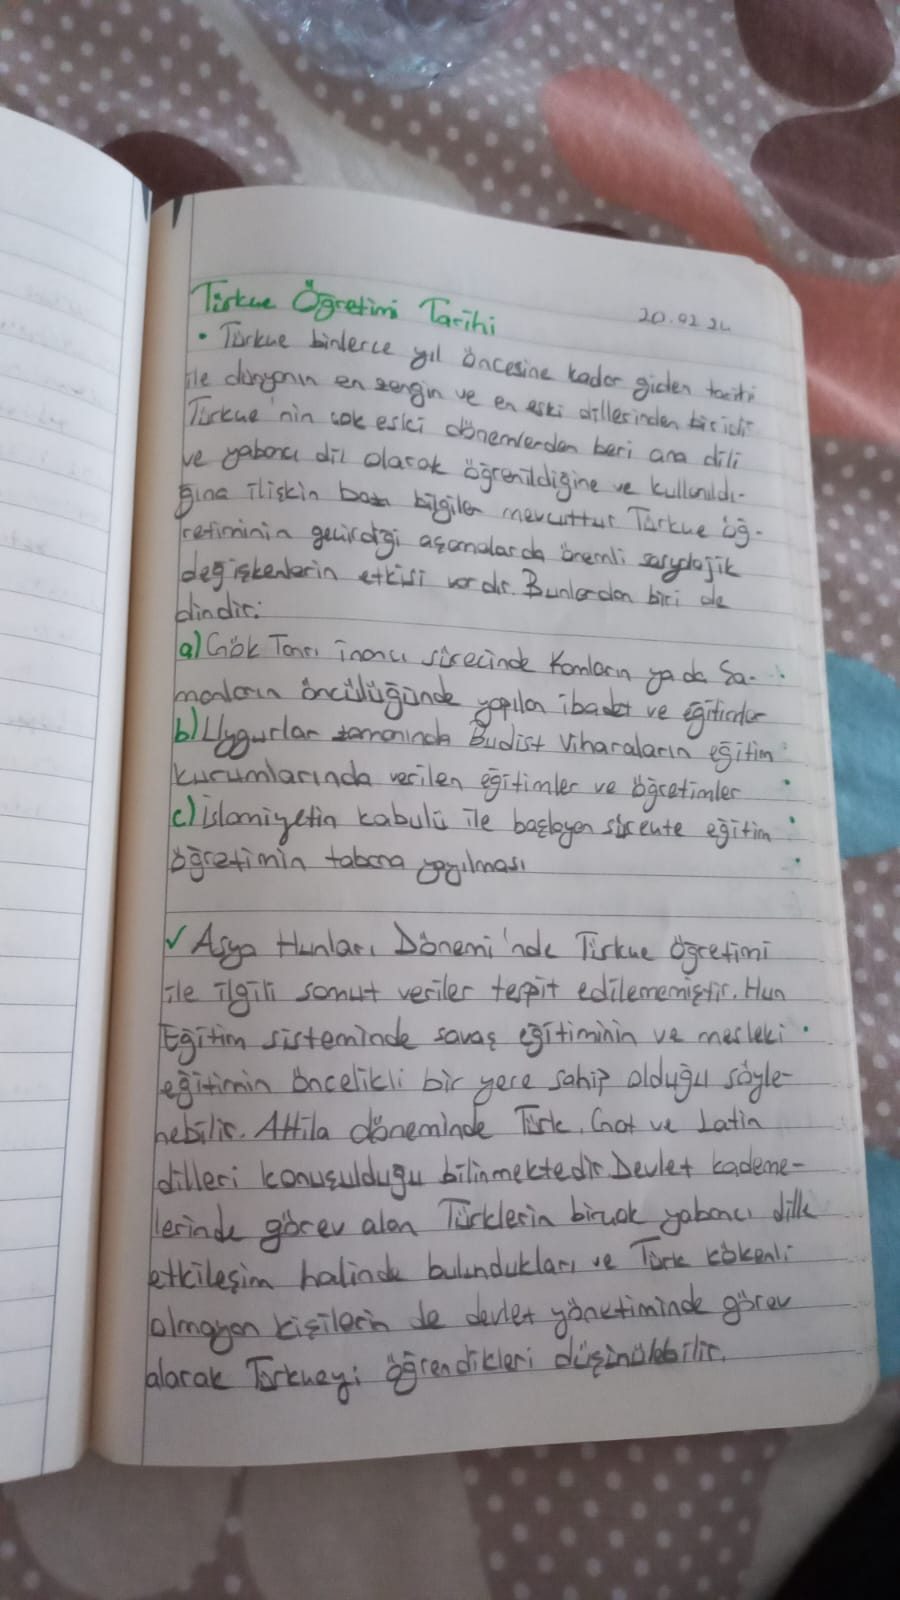 Türkçe Öğretimi Tarihi
20.02.24
• Türkçe binlerce yıl öncesine kadar giden tarihi
ile dünyanın en zengin ve en eski dillerinden biridir
Türkçe'nin çok eski dönemlerden beri ana dili
ve yabancı dil olarak öğrenildiğine ve kullanıldı-
ğına ilişkin bazı bilgiler mevcuttur Türkçe öğ-
retiminin geçirdiği aşamalarda önemli sosyolojik
değişkenlerin etkisi vardır. Bunlardan biri de
dindir:
a) Gök Tanrı inancı sürecinde Kamların ya da Şa-
manların öncülüğünde yapılan ibadet ve eğitimler
b) Uygurlar zamanında Budist Viharaların eğitim
kurumlarında verilen eğitimler ve öğretimler
c) İslamiyetin kabulü ile başlayan süreçte eğitim
öğretimin tabana yayılması
✓ Asya Hunları Dönemi'nde Türkçe Öğretimi
ile ilgili somut veriler tespit edilememiştir. Hun
Eğitim sisteminde savaş eğitiminin ve mesleki
eğitimin öncelikli bir yere sahip olduğu söyle-
nebilir. Attila döneminde Türk, Got ve Latin
dilleri konuşulduğu bilinmektedir. Devlet kademe-
lerinde görev alan Türklerin birçok yabancı dille
etkileşim halinde bulundukları ve Türk kökenli
olmayan kişilerin de devlet yönetiminde görev
alarak Türkçeyi öğrendikleri düşünülebilir.